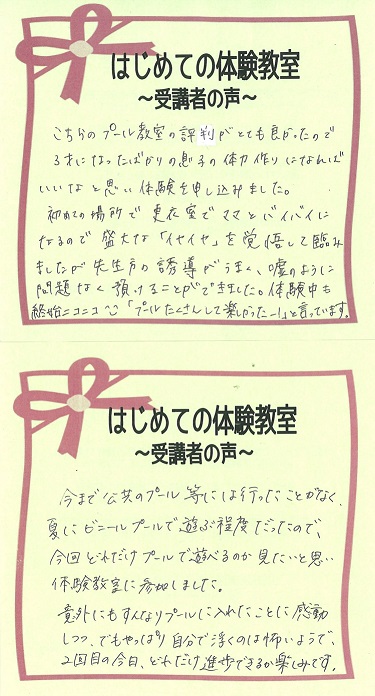 はじめての体験教室
～受講者の声～
こちらのプール教室の評判がとても良かったので
3才になったばかりの息子の体力作りになれば
いいなと思い体験を申し込みました。
初めての場所で更衣室でママとバイバイに
なるので盛大な「イヤイヤ」を覚悟して臨み
ましたが先生方の誘導がうまく、嘘のように
問題なく預けることができました。体験中も
終始ニコニコ「プールたくさんして楽しかったー!」と言っています。
はじめての体験教室
～受講者の声～
今まで公共のプール等には行ったことがなく、
夏にビニールプールで遊ぶ程度だったので、
今回どれだけプールで遊べるのか見たいと思い
体験教室に参加しました。
意外にもすんなりプールに入れたことに感動
しつつ、でもやっぱり自分で浮くのは怖いようで、
2回目の今日、どれだけ進歩できるか楽しみです。